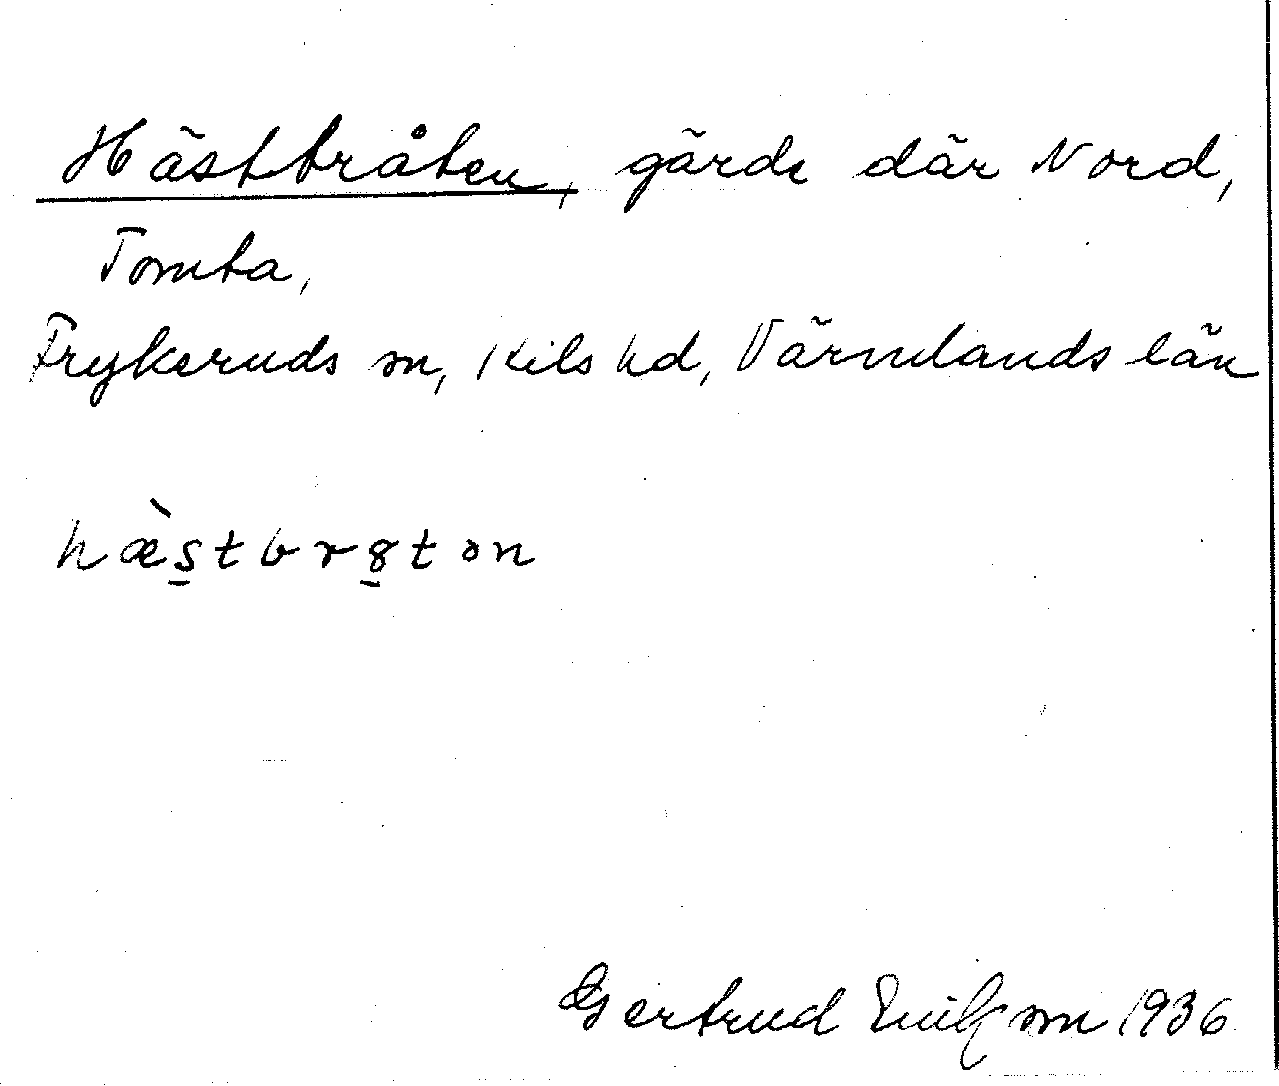 Hästbråten, gärde där Nord,
Tomta,
Frykeruds sn, Kils hd, Värmlands län
hæ̀s̲tbr8̲tən
Gertrud 1936